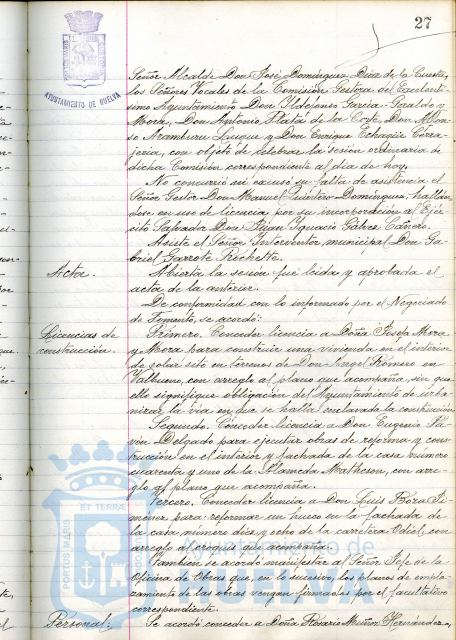 27
AYUNTAMIENTO DE HUELVA
Señor Alcalde Don José Domínguez Díaz de la Cuesta,
los Señores Vocales de la Comisión Gestora del Excelentí-
simo Ayuntamiento Don Ildefonso García-Giraldo y
Mora, Don Antonio Plata de la Corte, Don Alfon-
so Aramburu Luque y Don Enrique Echagüe Cerra-
jería, con objeto de celebrar la sesión ordinaria de
dicha Comisión correspondiente al día de hoy.
No concurrió ni excusó su falta de asistencia el
Señor Gestor Don Manuel Quintero Domínguez, hallán-
dose en uso de licencia por su incorporación al Ejér-
cito Salvador Don Juan Ignacio Gálvez Cañero.
Asiste el Señor Interventor municipal Don Ga-
briel Garrote
Actor.
Abierta la sesión fué leída y aprobada el
acta de la anterior.
De conformidad con lo informado por el Negociado
de Fomento, se acordó:
Licencias de
construcción.
Primero. Conceder licencia a Doña Josefa Mora
y Mora para construir una vivienda en el interior
de solar sito en terrenos de Don Angel Romero en
Valbueno, con arreglo al plano que acompaña, sin que
ello signifique obligación del Ayuntamiento de urba-
nizar la vía en que se halla enclavada la construcción.
Segundo. Conceder licencia a Don Eugenio Pa-
vón Delgado para ejecutar obras de reforma y cons-
trucción en el interior y fachada de la casa número
cuarenta y uno de la Alameda Matheson, con arre-
glo al plano que acompaña.
Tercero. Conceder licencia a Don Luis Roza Ji-
ménez para reformar un hueco en la fachada de
la casa número diez y ocho de la carretera Odiel, con
arreglo al croquis que acompaña.
También se acordó manifestar al Señor Jefe de la
Oficina de Obras que, en lo sucesivo, los planos de empla-
zamiento de las obras vengan firmados por el facultativo
correspondiente.
Personal:
Se acordó conceder a Doña Rosario Muñoz Hernández,
PORTUS MARIS ET TERRAE
Ayuntamiento de
HUELVA